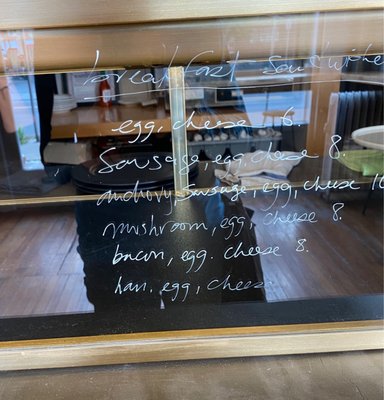 breakfast sandwiches
egg, cheese 6.
Sausage, egg, cheese 8.
anchovy, sausage, egg, cheese 10
mushroom, egg, cheese 8.
bacon, egg. cheese 8.
ham. egg, cheese